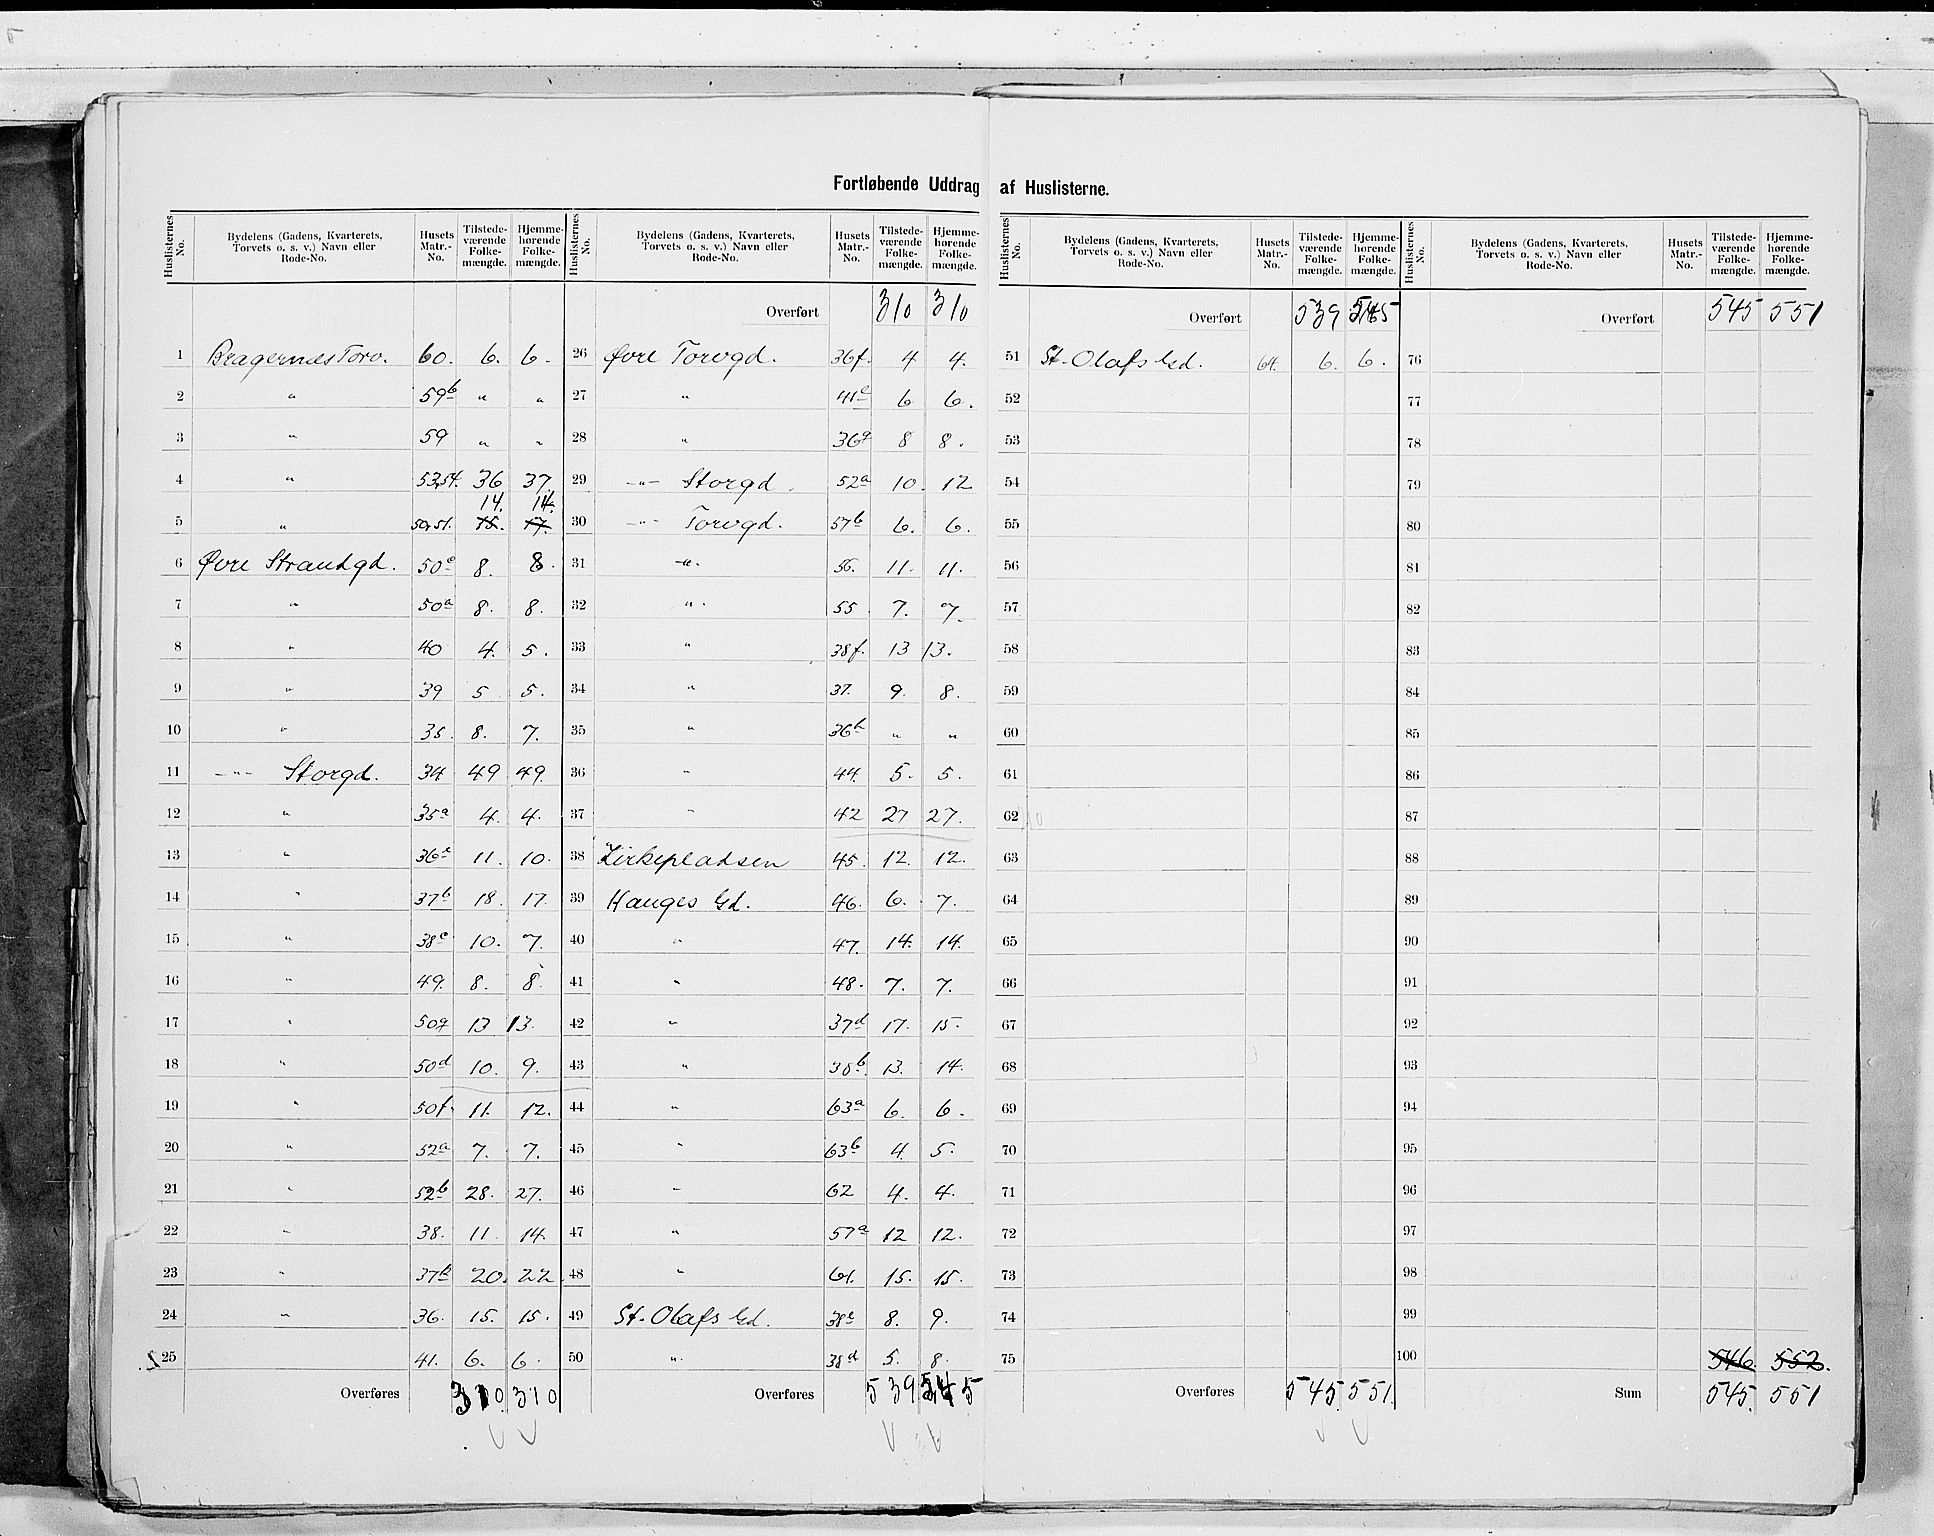 Fortløbende Uddrag af Huslisterne.
Huslisternes No. | Bydelens (Gadens, Kvarterets, Torvets o. s. v.) Navn eller Rode-No. | Husets Matr.-No. | Tilstedeværende Folkemængde. | Hjemmehørende Folkemængde.
1 Bragernes Torv. 60. 6. 6.
2 " 59b " "
3 " 59 " "
4 " 53,54. 36 37.
14. 14.
5 " 50,51. 15. 17.
6 Øvre Strandgd. 50e 8. 8.
7 " 50a 8. 8.
8 " 40 4. 5.
9 " 39 5 5.
10 " 35. 8. 7.
11 -"- Storgd. 34 49 49.
12 " 35a 4. 4.
13 " 36e 11. 10.
14 " 37b 18. 17.
15 " 38e 10. 7.
16 " 49. 8. 8.
17 " 50g 13 13.
18 " 50d 10. 9.
19 " 50f. 11. 12.
20 " 52a 7. 7.
21 " 52b 28. 27.
22 " 38. 11. 14.
23 " 37b 20. 22.
24 " 36. 15. 15.
25 41. 6. 6.
Overføres 310. 310
Huslisternes No. | Bydelens (Gadens, Kvarterets, Torvets o. s. v.) Navn eller Rode-No. | Husets Matr.-No. | Tilstedeværende Folkemængde. | Hjemmehørende Folkemængde.
Overført 310 310
26 Øvre Torvgd. 36f. 4 4.
27 " 41e 6 6.
28 " 36g 8 8.
29 -"- Storgd. 52a 10. 12
30 -"- Torvgd. 57b 6. 6.
31 -"- 56. 11. 11.
32 " 55. 7. 7.
33 " 38f. 13 13.
34 " 37. 9. 8.
35 " 36b " "
36 " 44. 5. 5.
37 " 42 27 27.
38 Kirkepladsen 45. 12. 12.
39 Hauges Gd. 46. 6. 7.
40 " 47. 14. 14.
41 " 48. 7. 7.
42 " 37d 17. 15.
43 " 38b 13. 14.
44 " 63a 6. 6.
45 " 63b 4. 5.
46 " 62 4. 4.
47 " 57a 12 12.
48 " 61. 15. 15.
49 St. Olafs Gd. 38c 8. 9.
50 " 38d 5. 8.
Overføres 539 545
Huslisternes No. | Bydelens (Gadens, Kvarterets, Torvets o. s. v.) Navn eller Rode-No. | Husets Matr.-No. | Tilstedeværende Folkemængde. | Hjemmehørende Folkemængde.
Overført 539 545
51 St. Olafs Gd. 64. 6. 6.
52
53
54
55
56
57
58
59
60
61
62
63
64
65
66
67
68
69
70
71
72
73
74
75
Overføres 545. 551.
Huslisternes No. | Bydelens (Gadens, Kvarterets, Torvets o. s. v.) Navn eller Rode-No. | Husets Matr.-No. | Tilstedeværende Folkemængde. | Hjemmehørende Folkemængde.
Overført 545 551
76
77
78
79
80
81
82
83
84
85
86
87
88
89
90
91
92
93
94
95
96
97
98
99
100 546. 552.
Sum 545. 551